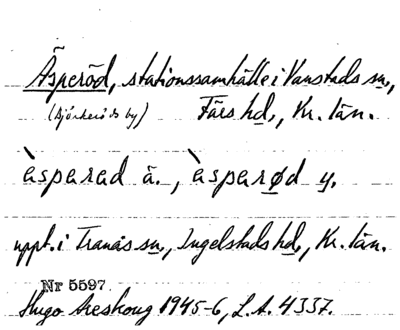 Äsperöd, stationssamhälle i Vanstads sn,
(Björkeröds by) Färs hd., Kr. län.
`asparad ä., `asparød y.
uppt. i Tranås sn, Ingelstads hd, Kr. län.
Nr 5597
Hugo Areskoug 1945-6, L.A. 4337.